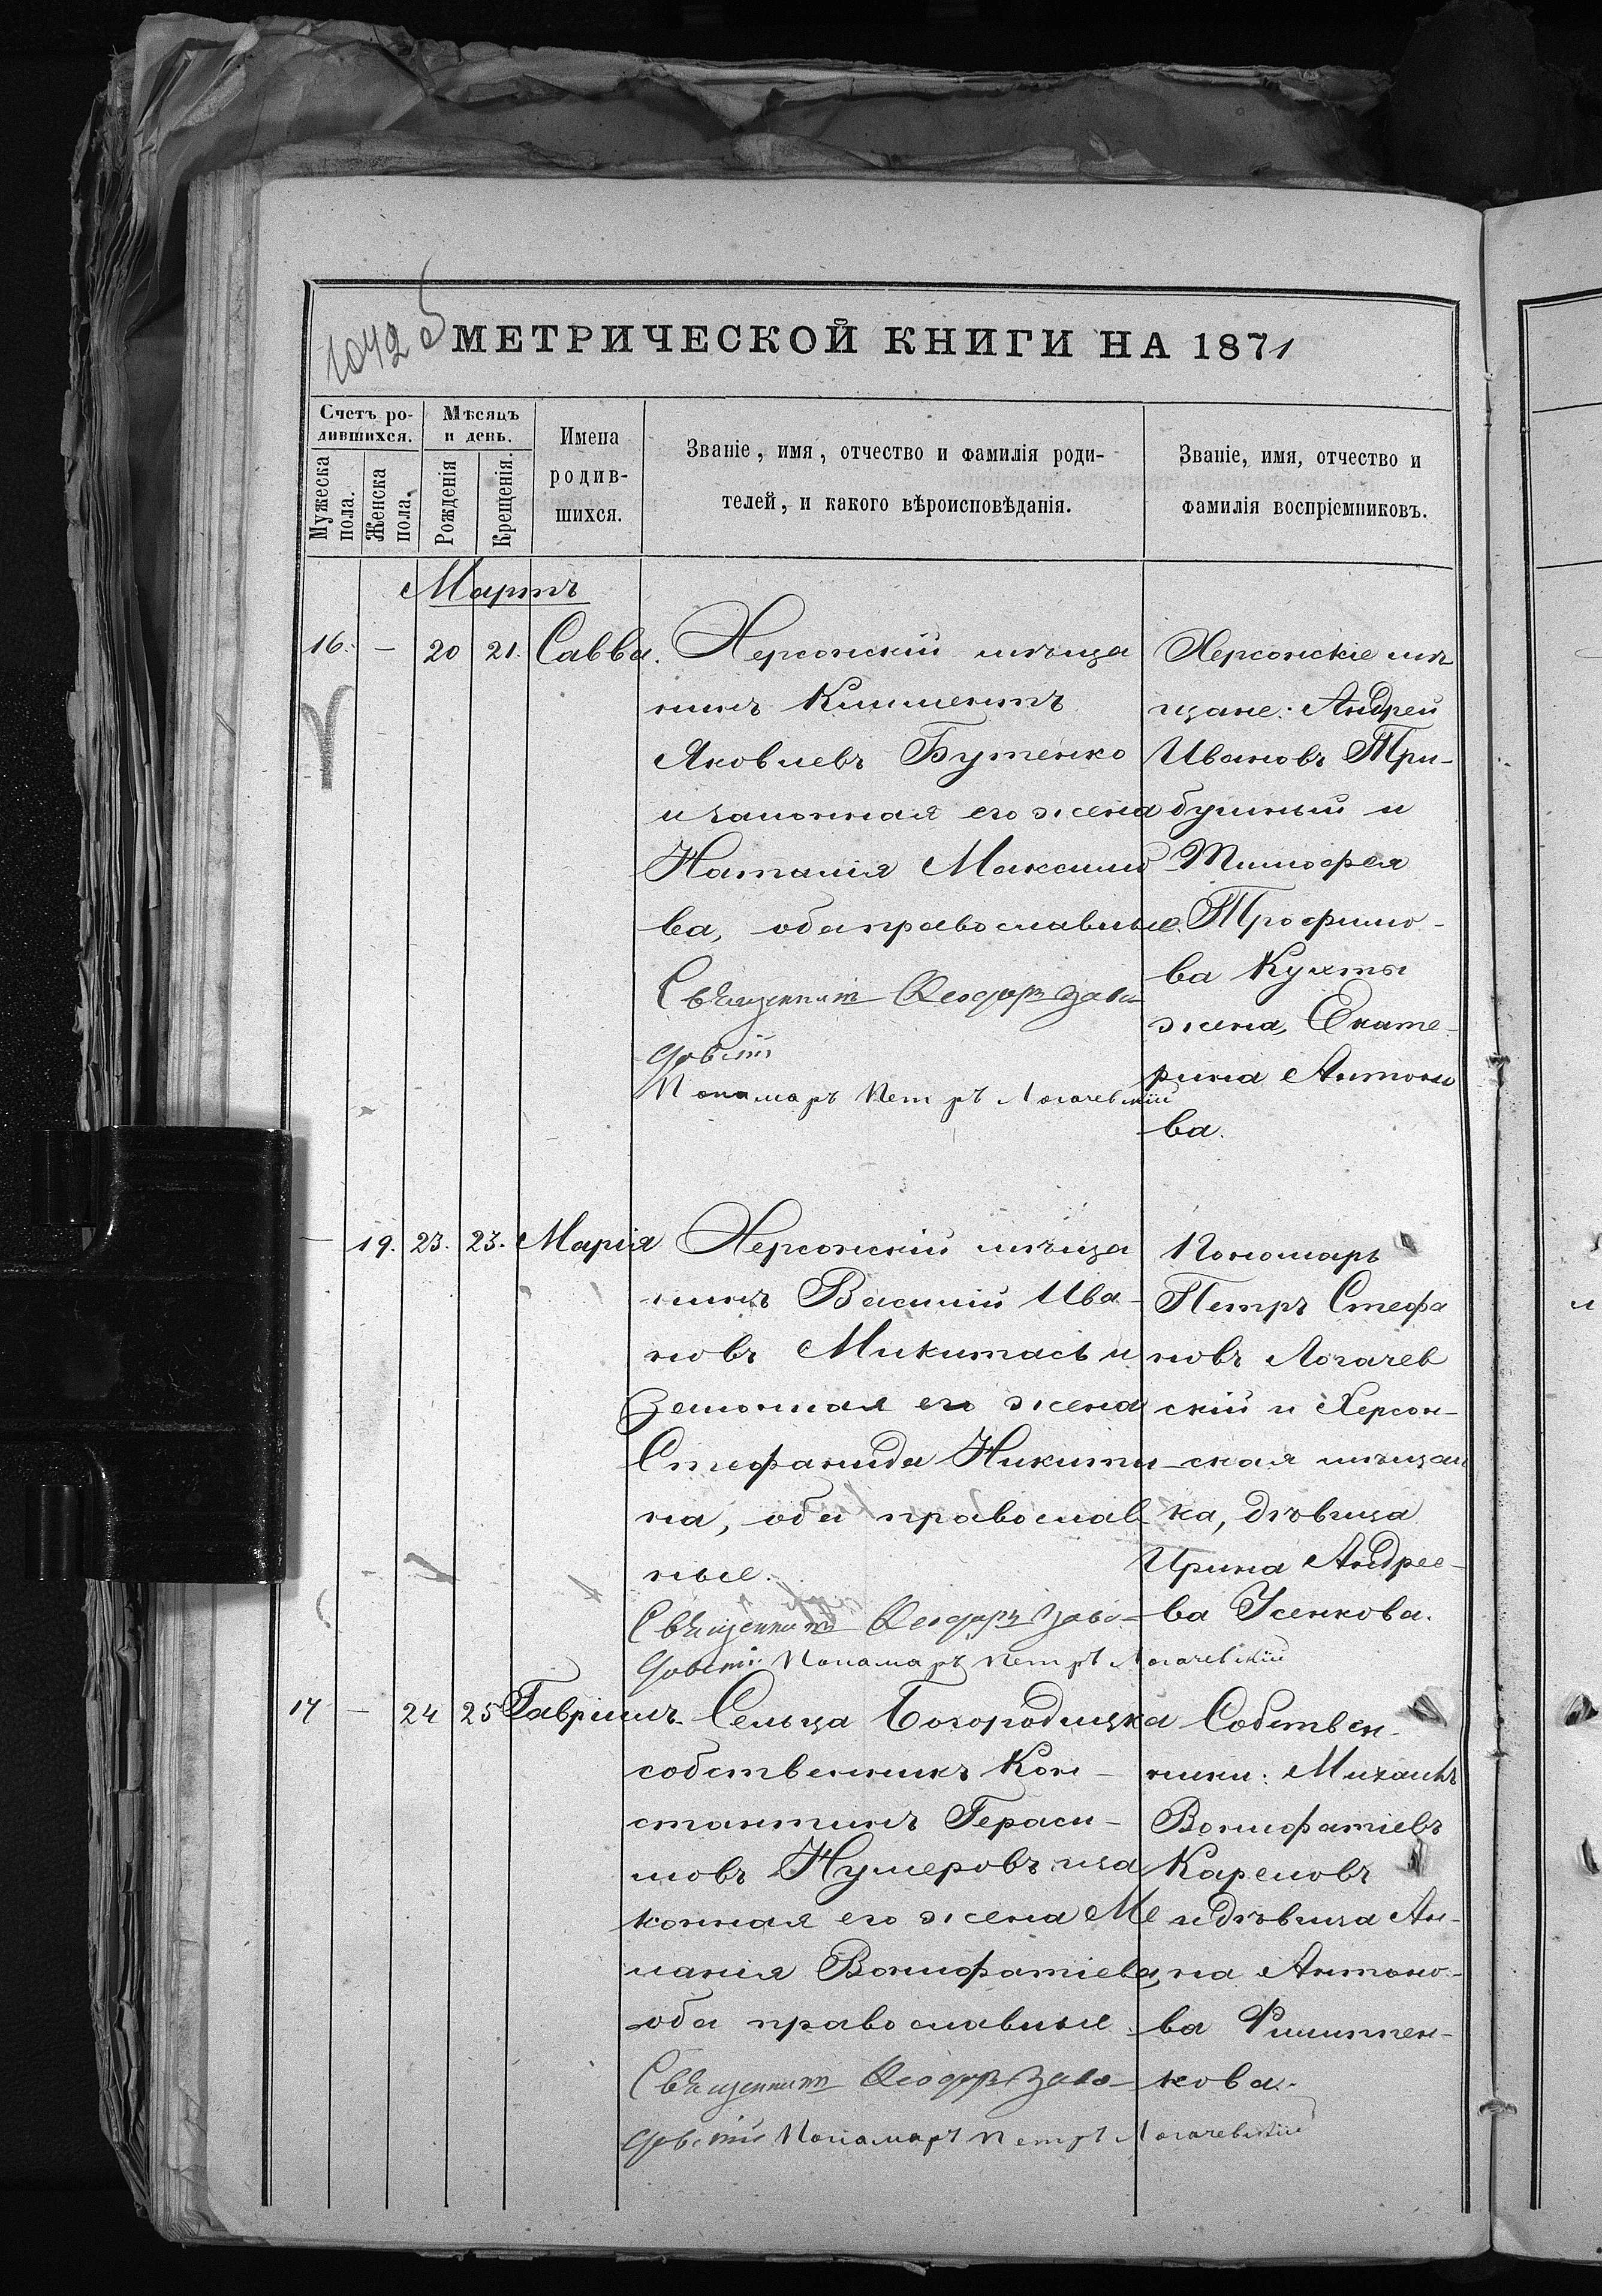 1042 об
МЕТРИЧЕСКОЙ КНИГИ НА 1871
Счетъ ро-
дившихся.
Мужеска
пола.
Женска
пола.
Мѣсяцъ
и день.
Рожденія
Крещенія.
Имена
родив-
шихся.
Званіе, имя, отчество и фамилія роди-
телей, и какого вѣроисповѣданія.
Званіе, имя, отчество и
фамилія воспріемниковъ.
Мартъ
16. — 20 21. Савва.
Херсонскій мѣща
нинъ Климентъ
Яковлевъ Бутенко
и законная его жена
Наталія Максимо
ва, оба православные.
Священникъ Ѳеодоръ Заво
довскій
Понамаръ Петръ Логачевскій
Херсонскіе мѣ
щане: Андрей
Ивановъ Три-
бушный и
Тимофея
Трофимо-
ва Кухты
жена, Екате-
рина Антоно
ва.
— 19. 23. 23. Марія
Херсонскій мѣща
нинъ Василій Ива-
новъ Микитась и
законная его жена
Стефанида Никити
на, оба православ
ные.
Священникъ Ѳеодоръ Заво-
довскій Понамаръ Петръ Логачевскій
Пономарь
Петръ Стефа
новъ Логачев
скій и Херсон-
ская мѣщан
ка, дѣвица
Ирина Андрее-
ва Усенкова.
17 — 24 25 Гавріилъ.
Сельца Богородицка
собственникъ Кон-
стантинъ Гераси-
мовъ Нумеровъ и за
конная его жена Ме
ланія Вонифатіева,
оба православные
Священникъ Ѳеодоръ Заво-
довскій Понамаръ Петръ Логачевскій
Собствен-
ники: Михаилъ
Вонифатіевъ
Кареловъ
и дѣвица Ан-
на Антоно-
ва Филиппен-
кова.